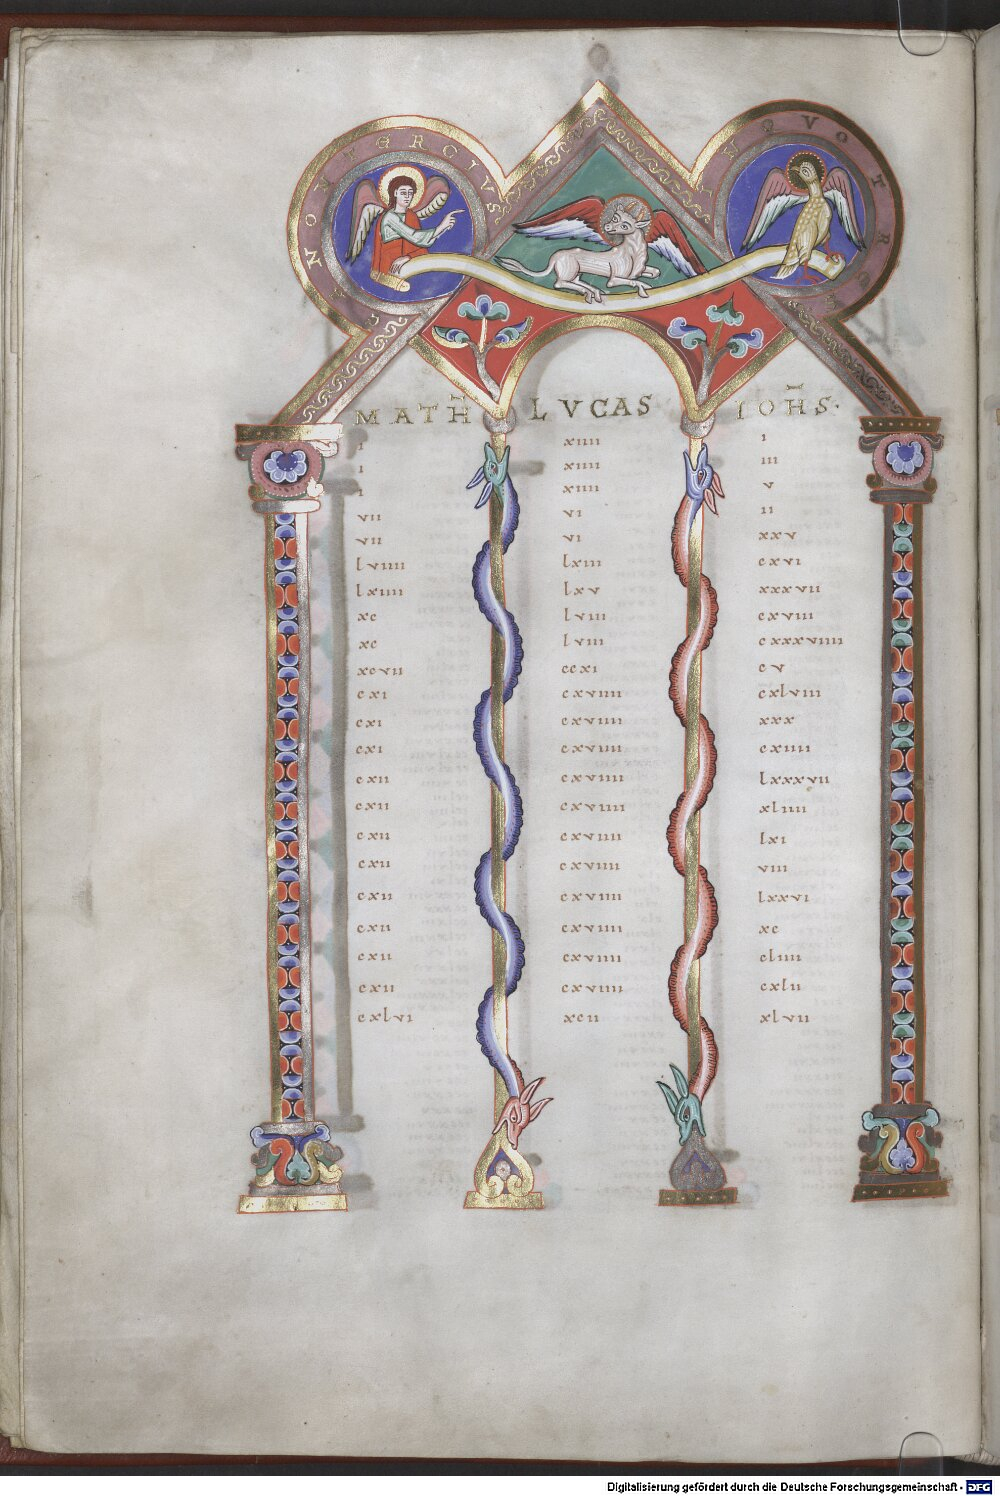 CANON TERCIVS IN QVO TRES
MATH̅ LVCAS IOH̅S·
i xiiii i
i xiiii iii
i xiiii v
vii vi ii
vii vi xxv
lviiii lxiii cxvi
lxiiii lxv xxxvii
xc lviii cxviii
xc lviii cxxxviiii
xcvii ccxi cv
cxi cxviiii cxlviii
cxi cxviiii xxx
cxi cxviiii cxiiii
cxii cxviiii lxxxvii
cxii cxviiii xliiii
cxii cxviiii lxi
cxii cxviiii viii
cxii cxviiii lxxvi
cxii cxviiii xc
cxii cxviiii cliiii
cxii cxviiii cxlii
cxlvi xcii xlvii
Digitalisierung gefördert durch die Deutsche Forschungsgemeinschaft - DFG